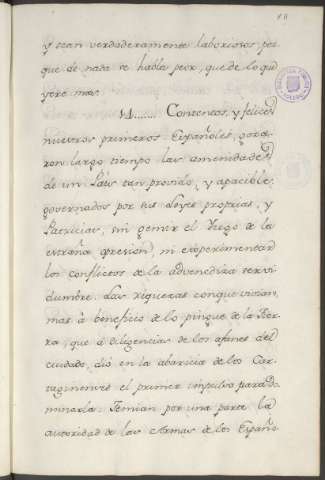 y sean verdaderamente laboriosos por
que de nada se habla peor, que de lo que
yere mas.
14...... Contentos, y felices
nuestros primeros Españoles, goza-
ron largo tiempo las amenidades
de un Païs tan provido, y apacible,
governados por sus Leyes proprias, y
Patricias, sin gemir el Yugo de la
estraña opresion, ni experimentar
los conflictos de la advenediza servi-
dumbre. Las riquezas con que vivian,
mas à beneficio de lo pingue de la Tier-
ra, que à diligencias de los afanes del
cuidado, dió en la abaricia de los Car-
taginenses el primer impulso para do-
minarla. Temian por una parte la
autoridad de las Armas de los Españo-